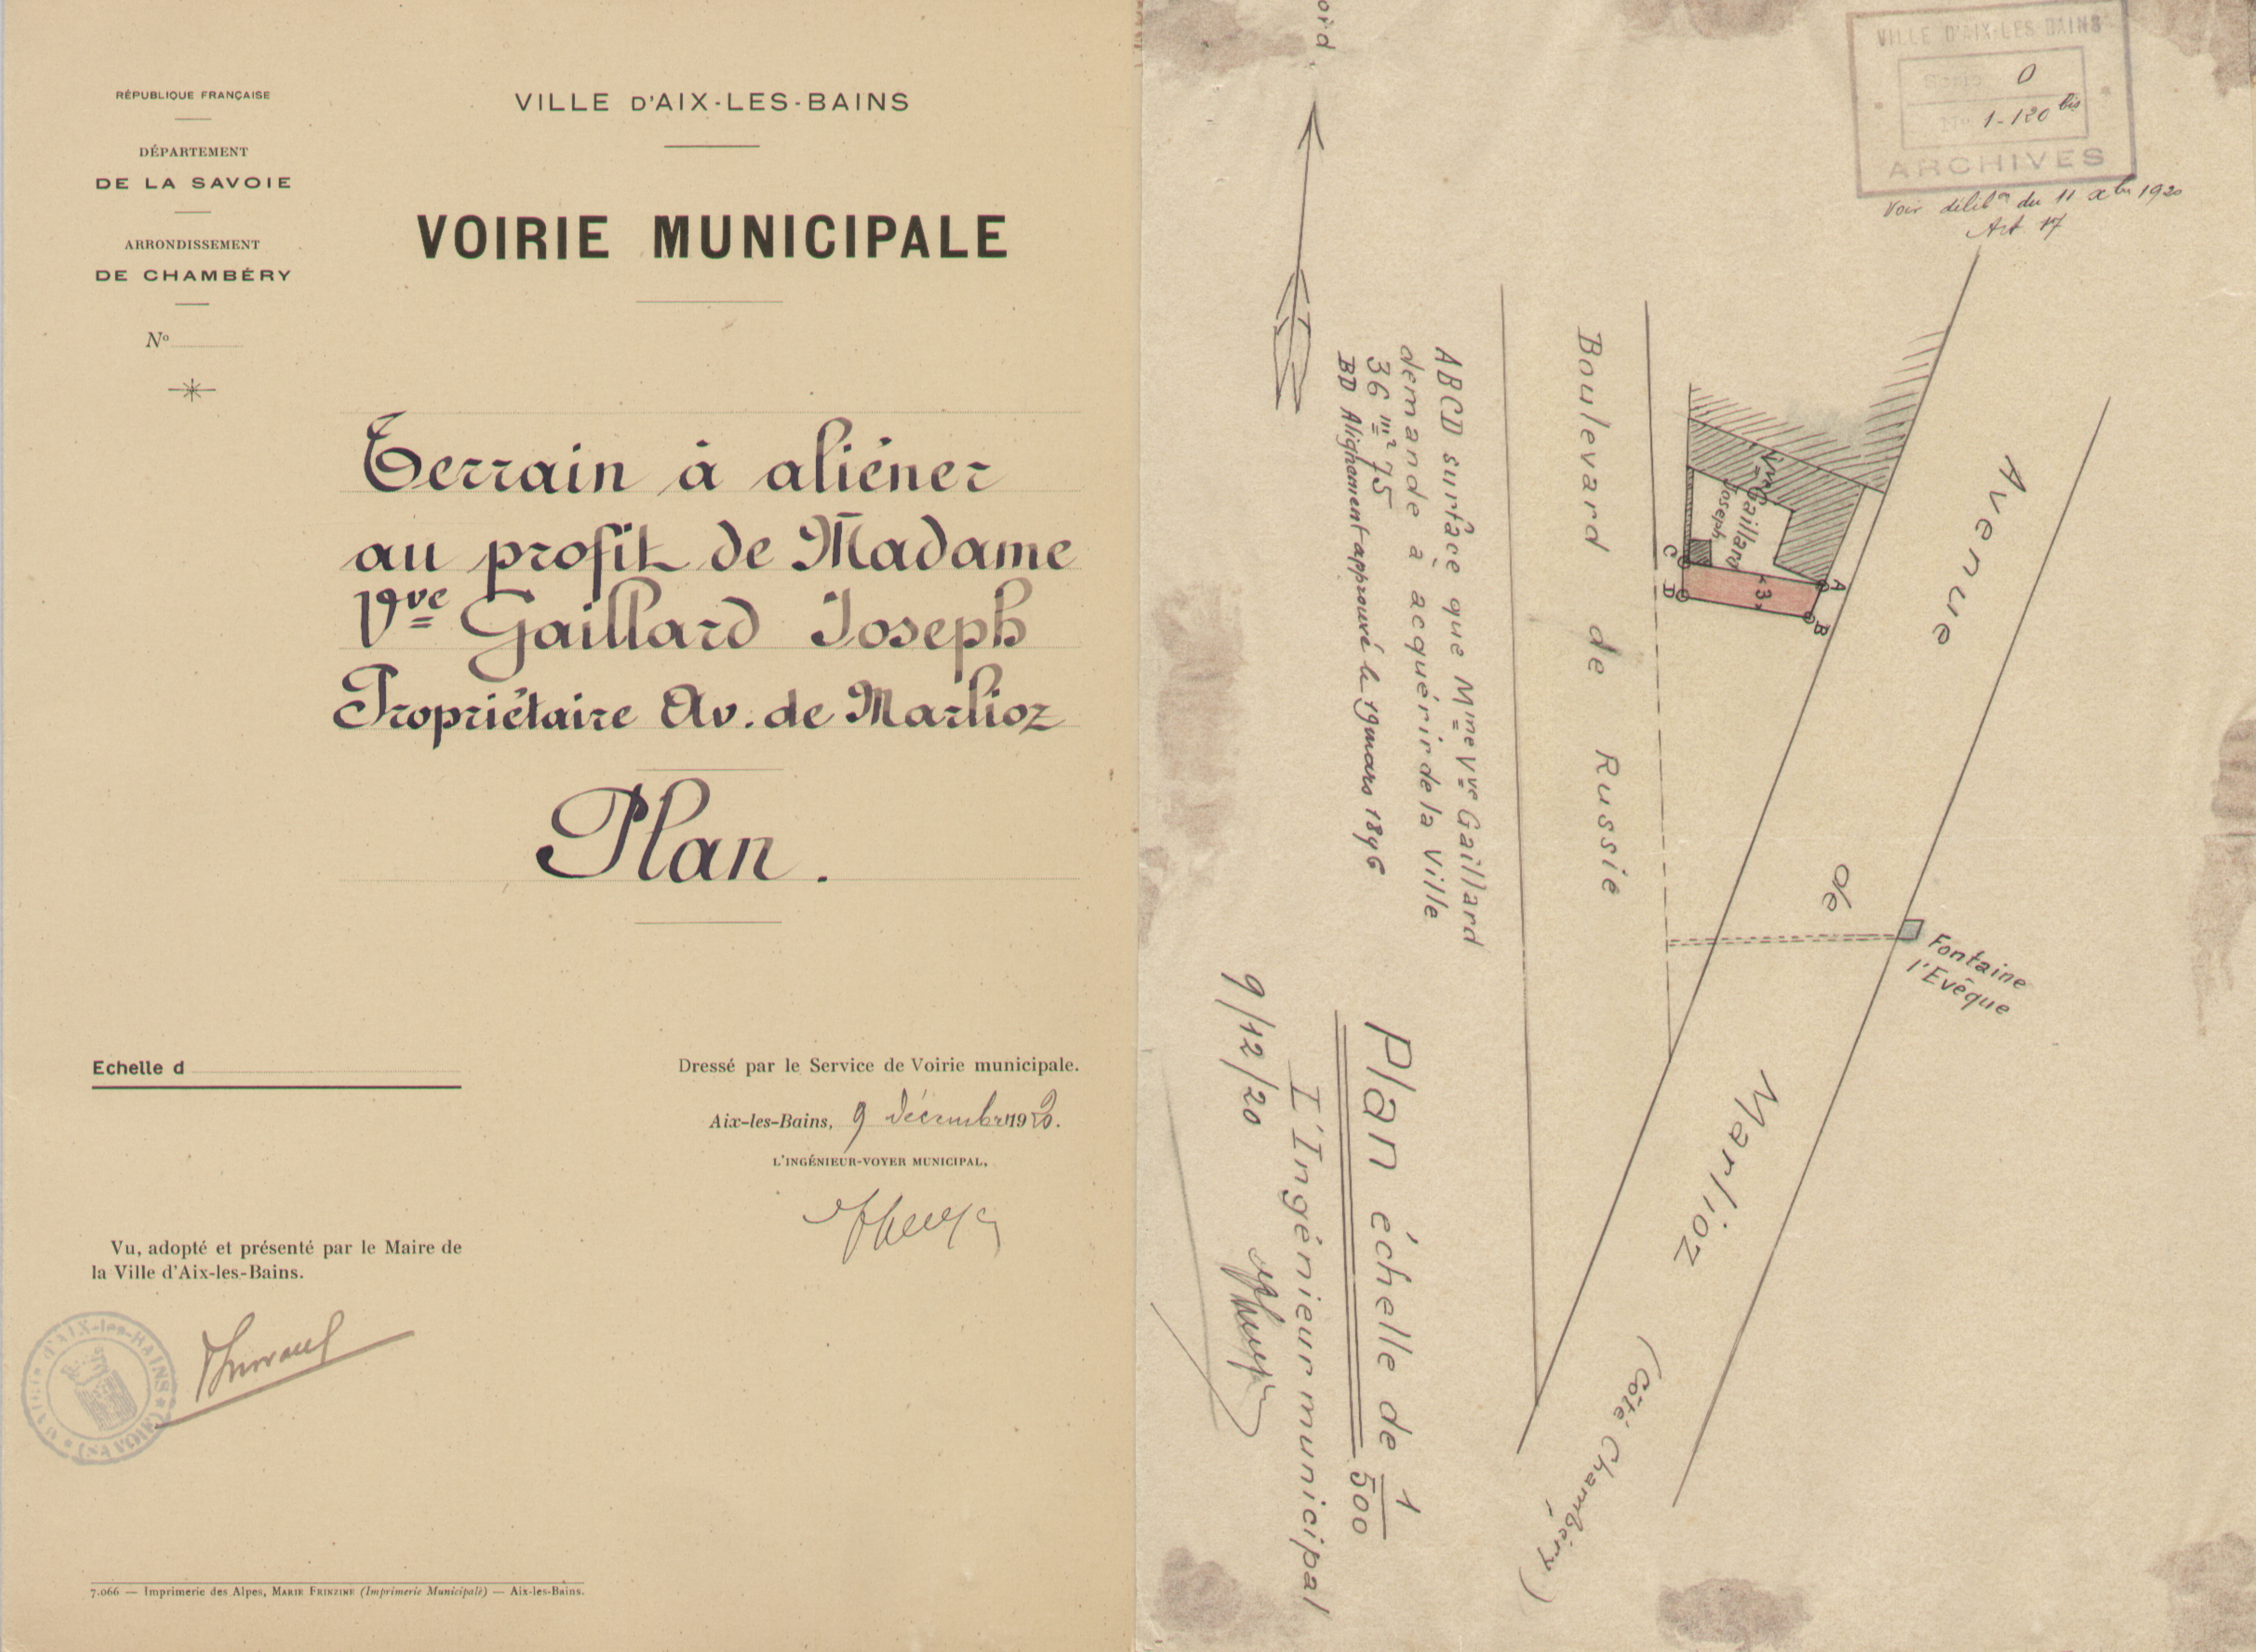 RÉPUBLIQUE FRANÇAISE
DÉPARTEMENT
DE LA SAVOIE
ARRONDISSEMENT
DE CHAMBÉRY
No
VILLE D'AIX-LES-BAINS
VOIRIE MUNICIPALE
Terrain à aliéner
au profit de Madame
Vve Gaillard Joseph
Propriétaire Av. de Marlioz
Plan.
Echelle d
Dressé par le Service de Voirie municipale.
Aix-les-Bains, 9 décembre 1920.
L'INGÉNIEUR-VOYER MUNICIPAL,
Vu, adopté et présenté par le Maire de
la Ville d'Aix-les-Bains.
MAIRIE d'AIX-les-BAINS
(SAVOIE)
7.066 — Imprimerie des Alpes, MARIE FRINZINE (Imprimerie Municipale) — Aix-les-Bains.
VILLE D'AIX-LES-BAINS
Serie O
No 1-120 bis
ARCHIVES
Voir délibon du 11 xbre 1920
Art 17
Avenue
de
Marlioz
(Côté Chambéry)
Fontaine
l'Evêque
Vve Gaillard
Joseph
A
B
C
D
3
Boulevard de Russie
ABCD surface que Mme Vve Gaillard
demande à acquérir de la Ville
36 m² 75
BD Alignement approuvé le 19 mars 1896
Plan échelle de 1/500
L'Ingénieur municipal
9/12/20